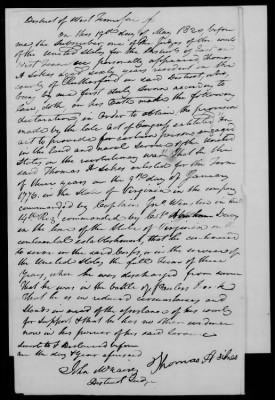 District of West Tennessee
On this 19th day of May 1820 before
me, the Subscriber, one of the Judges of the courts
of the United States for the Districts of East and
West Tennessee personally appearing Thomas
H Sikes aged sixty years resident in the
county of Rutherford in said District, who,
being by me first duly sworn according to
law, doth on his oath make the following
declaration, in order to obtain the provision
made by the late Act of Congress entitled "An
act to provide for certain persons engaged
in the land and naval service of the United
States in the revolutionary war" That he the
said Thomas H Sikes enlisted for the term
of three years on the 9th day of January
1776, in the State of Virginia in the company
commanded by Captain Winston in the
14th Reg. commanded by Col.
in the line of the State of Virginia on the
continental establishment, that he continued
to serve in the said Corps, or in the service of
the United States the full term of three
Years, when he was discharged from service
That he was in the battle of
That he is in reduced circumstances and
stands in need of the assistance of his country
for support & that he has no other evidence
now in his power of his said service
Sworn to & Declared before
me the day & Year aforesaid
Thomas H Sikes
John McNairy
District Judge